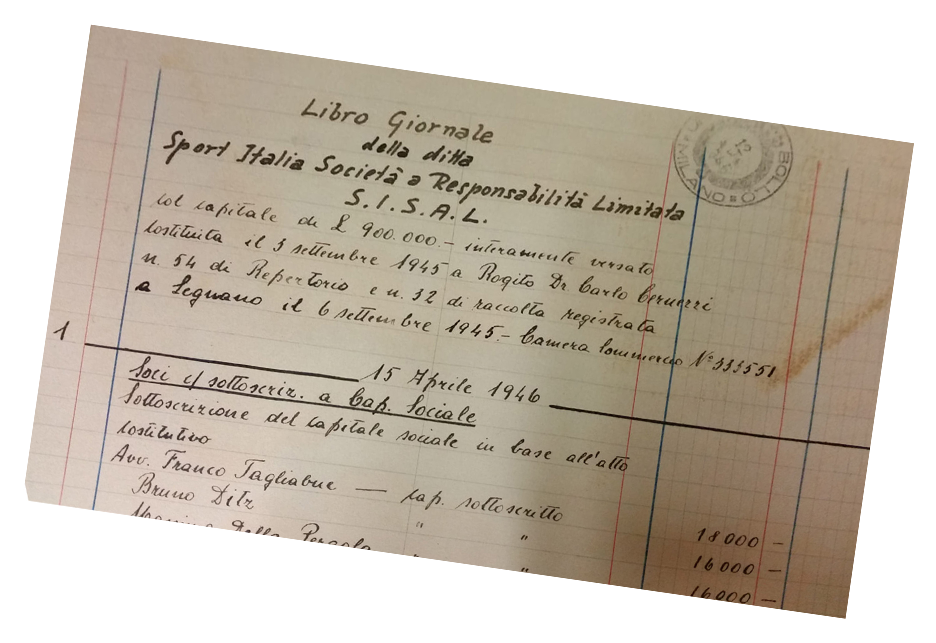 Libro Giornale
della ditta
Sport Italia Società a Responsabilità Limitata
S.I.S.A.L.
col capitale di £ 900.000.- interamente versato
costituita il 5 settembre 1945 a Rogito Dr Carlo
n. 54 di Repertorio e n. 32 di raccolta registrata
a Legnano il 6 settembre 1945.- Camera Commercio N°333551
1
15 Aprile 1946
Soci c/ sottoscriz. a Cap. Sociale
Sottoscrizione del capitale sociale in base all'atto
costitutivo
Avv. Franco Tagliabue — cap. sottoscritto 18000 -
Bruno Ditz " " 16000 -
Massimo Della Pergola " 16000 -
MILANO
BOLLO